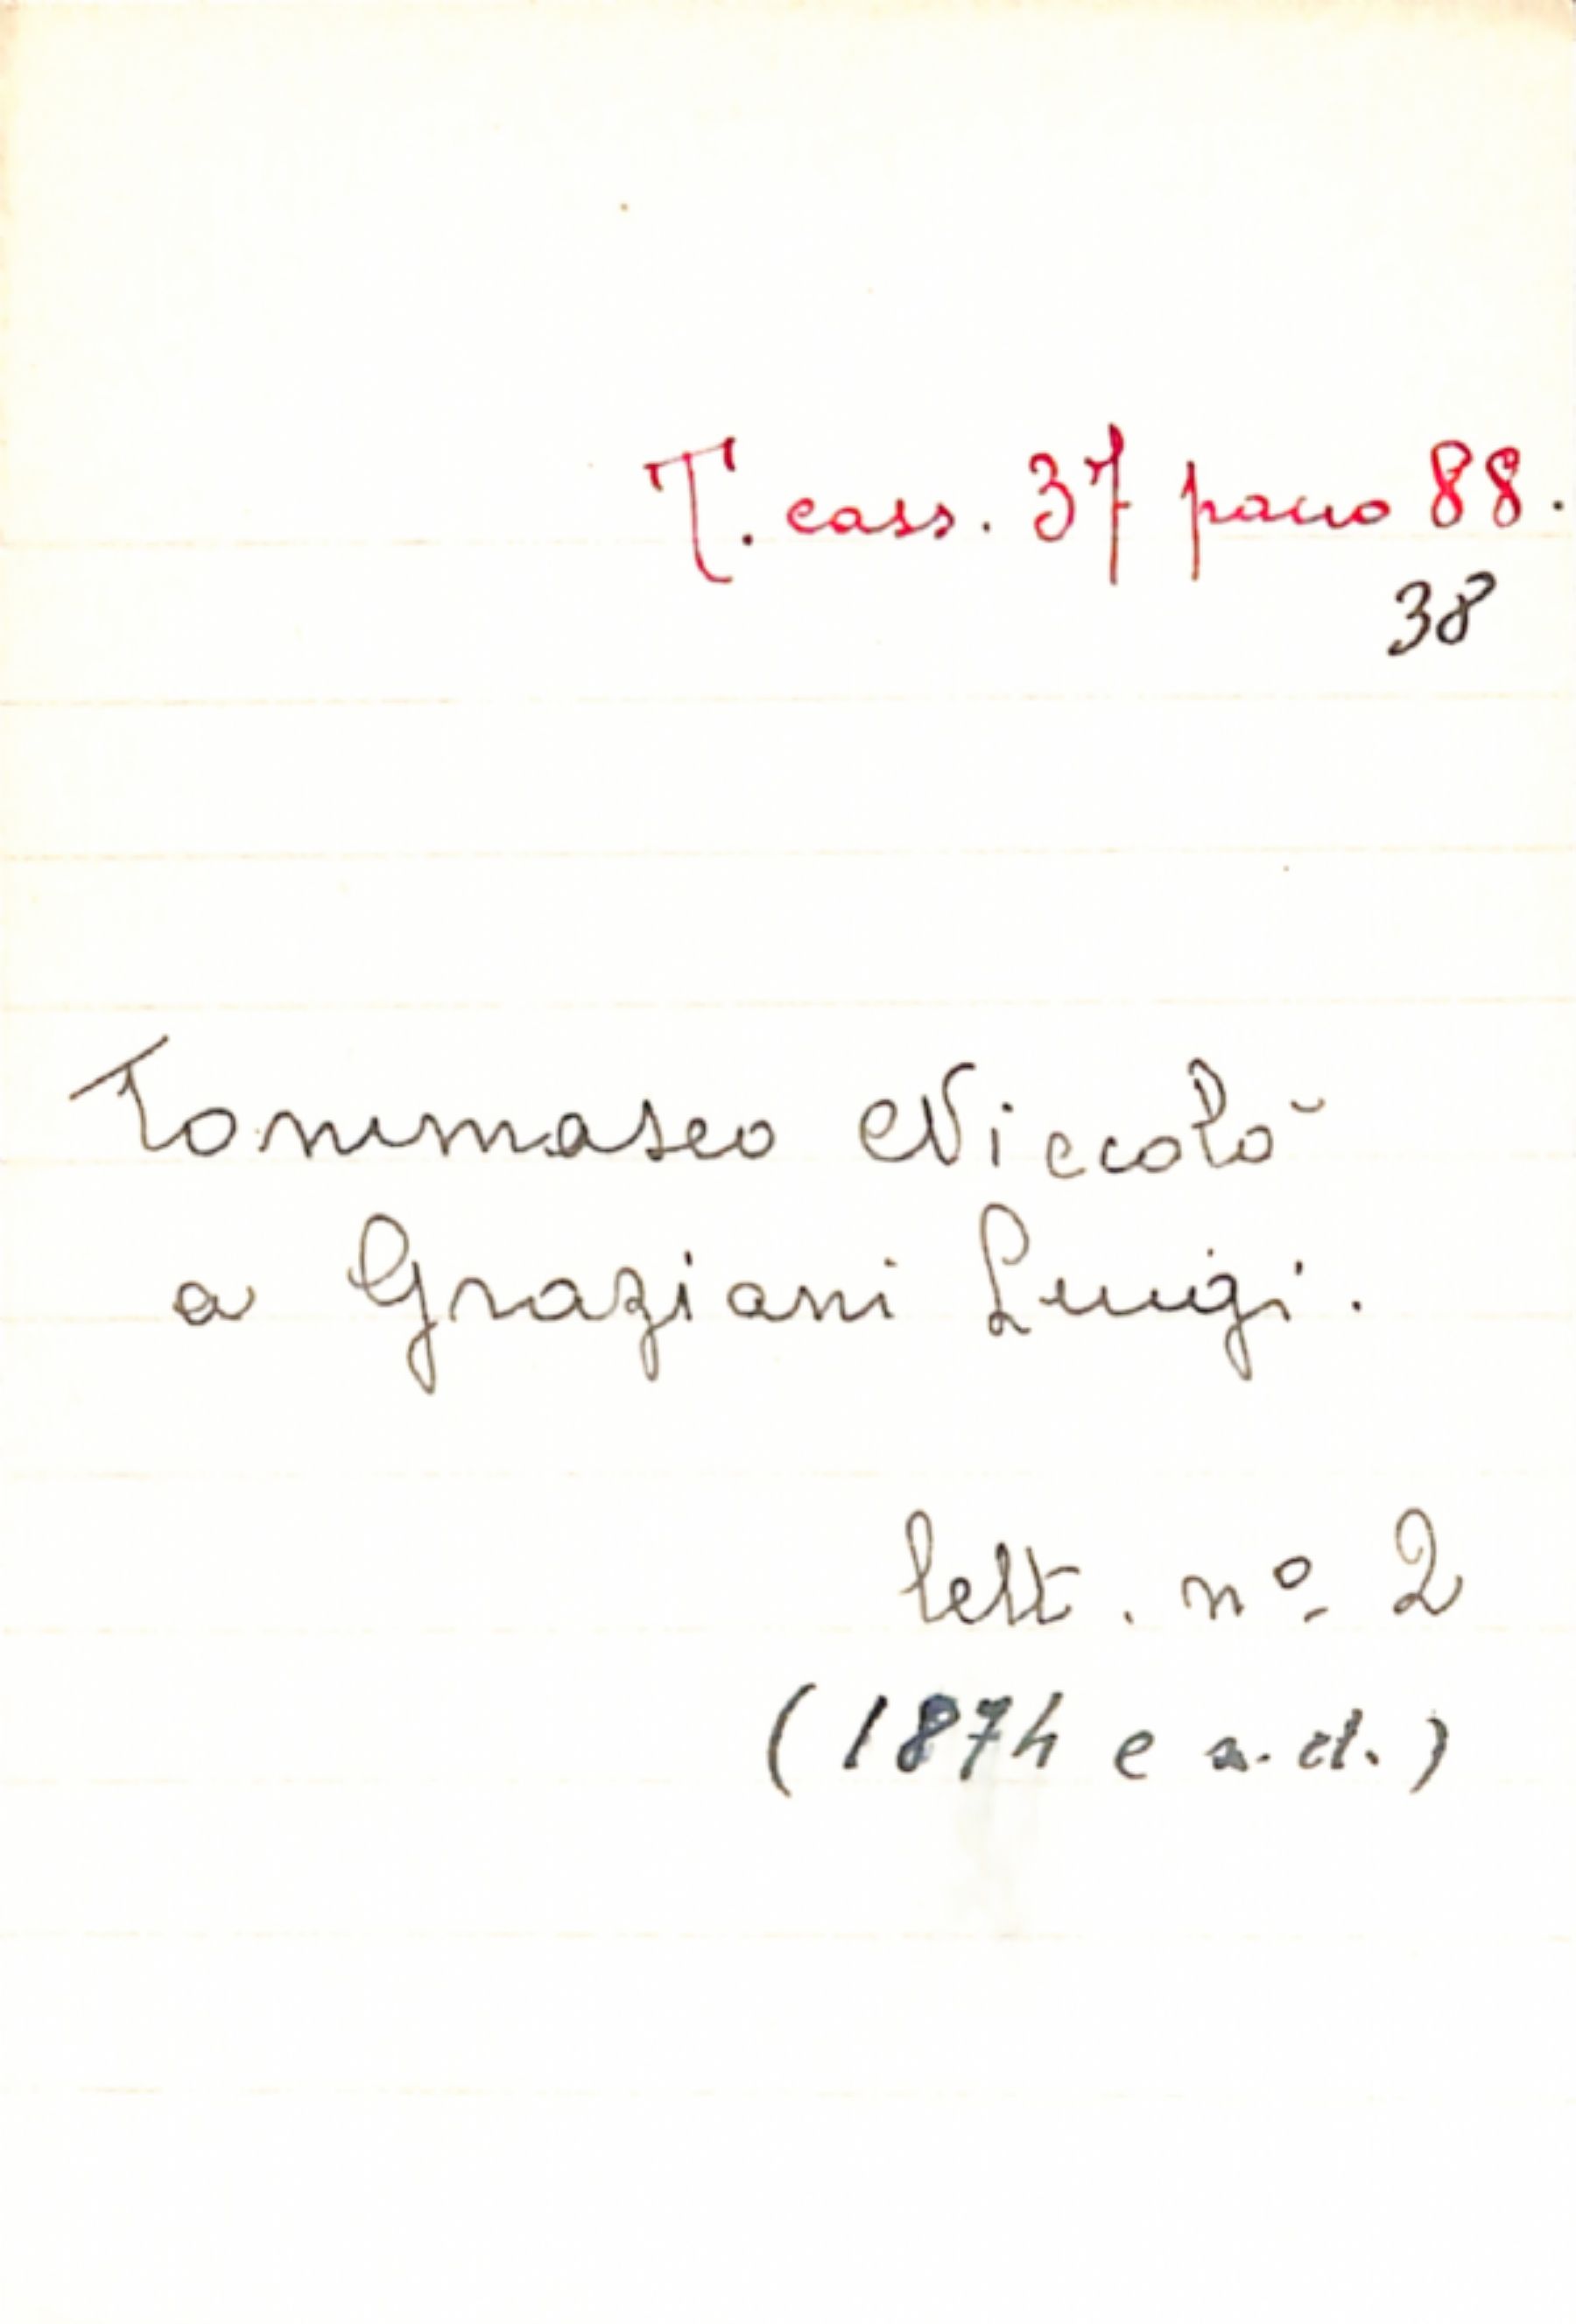 T. cass. 37 pacco 88.
38
Tommaseo Niccolò
a Graziani Luigi.
lett. nº 2
(1874 e s. d.)